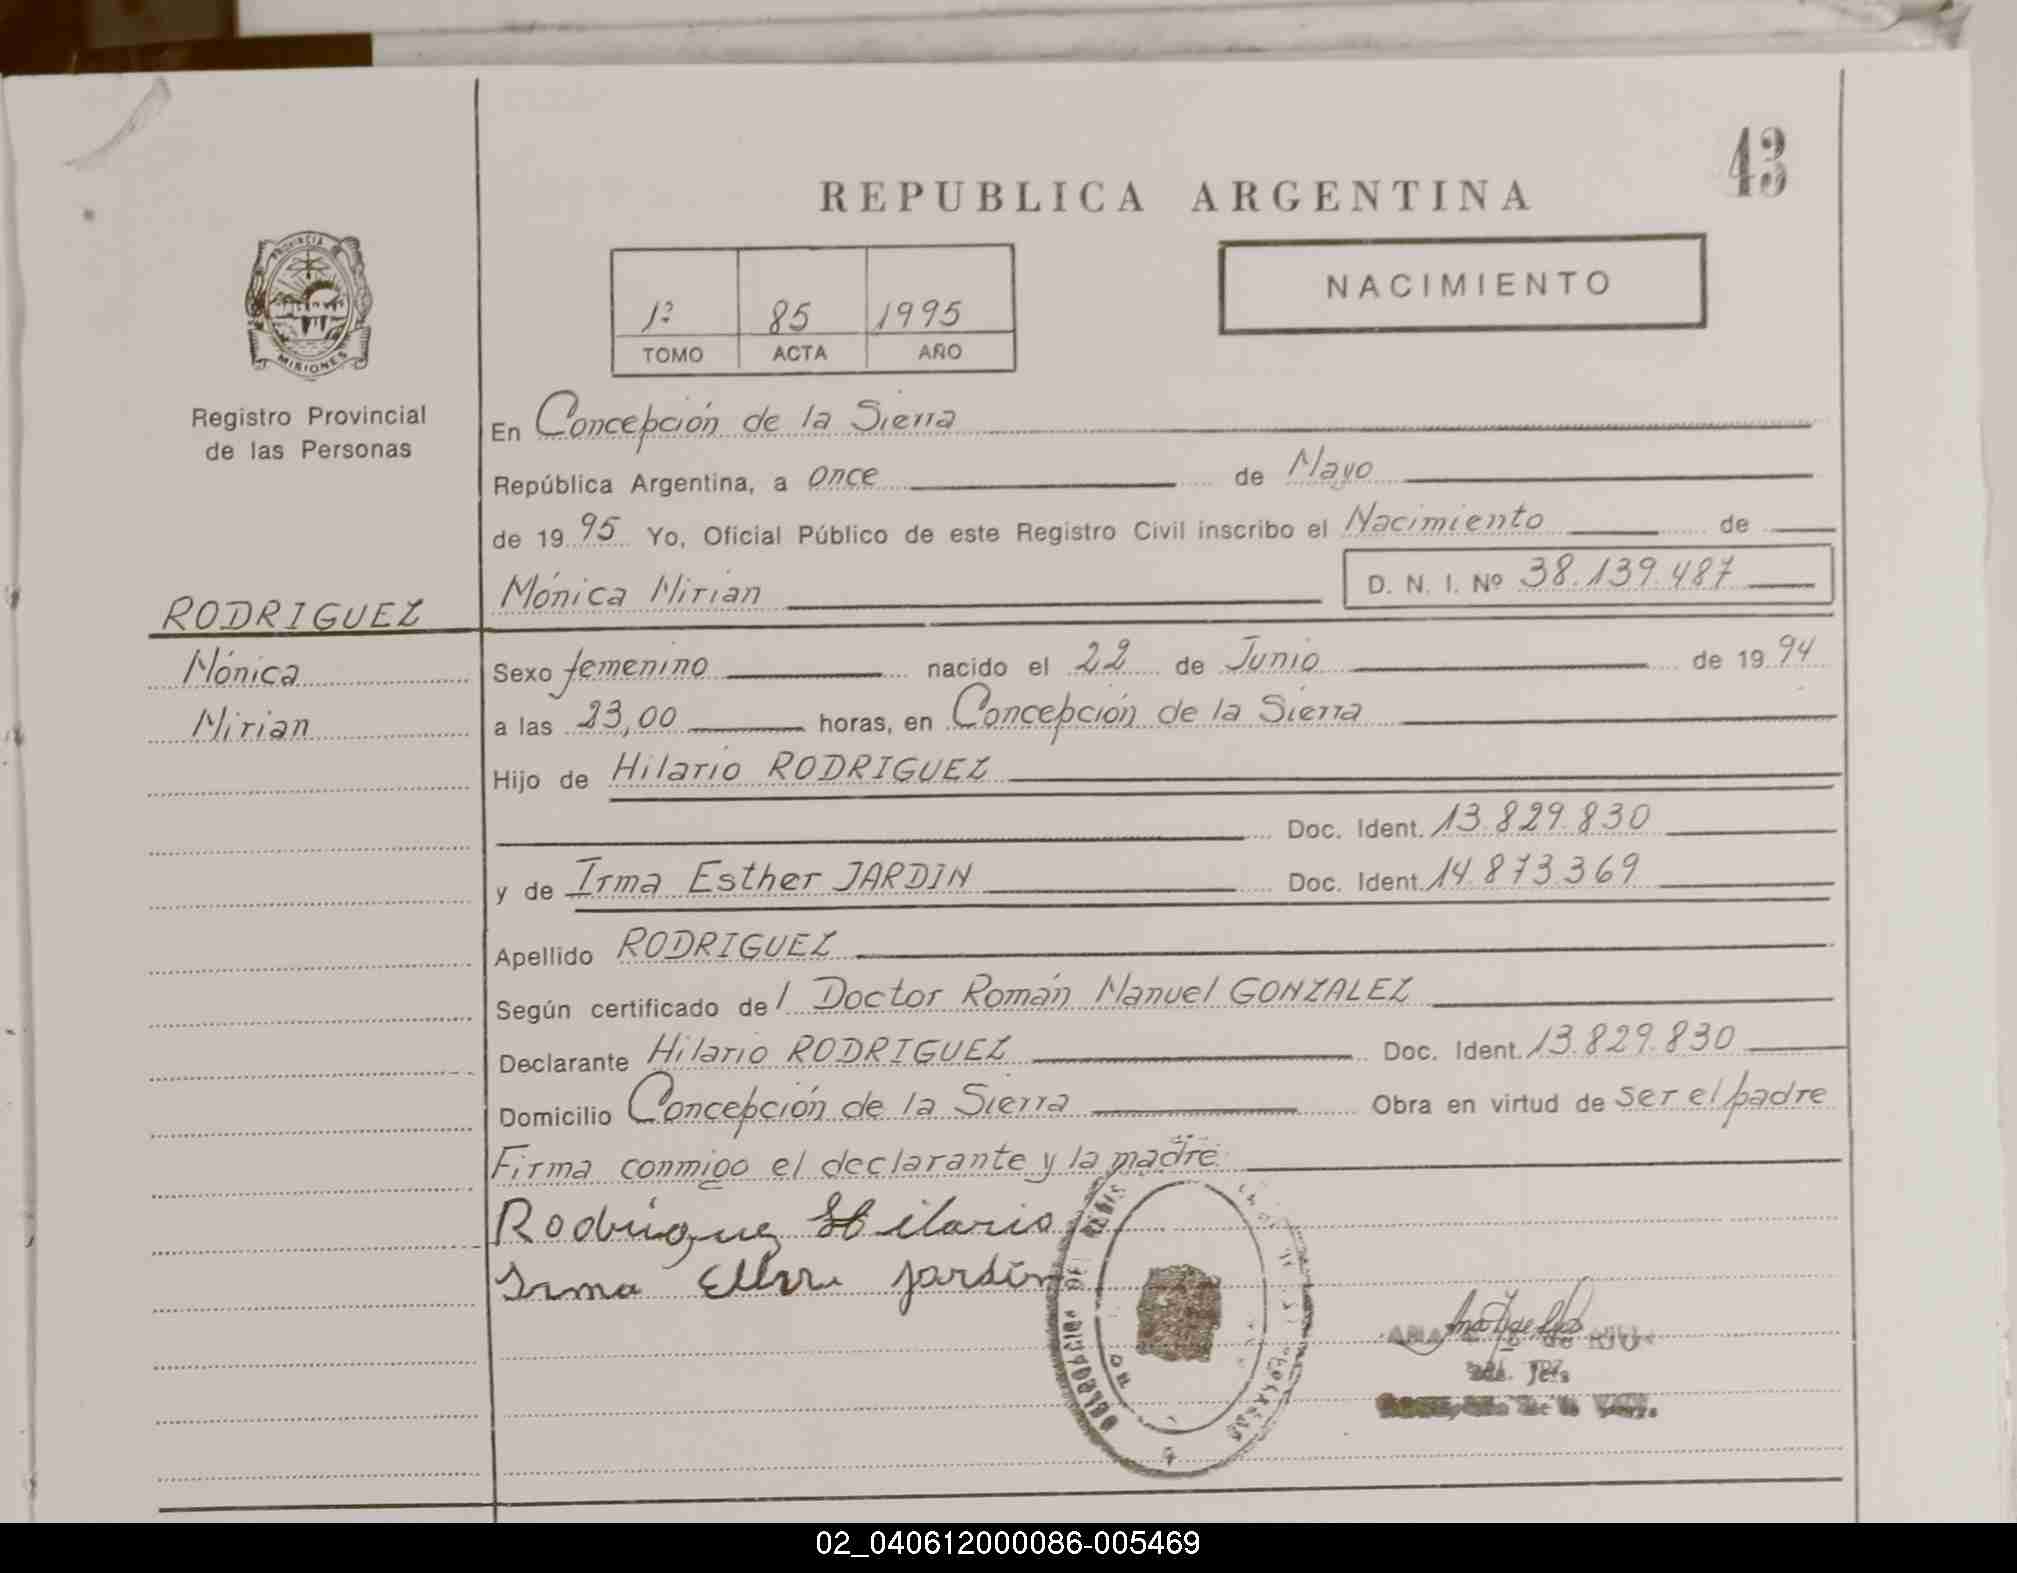 43
REPUBLICA ARGENTINA
NACIMIENTO
1º 85 1995
TOMO ACTA AÑO
PROVINCIA
MISIONES
Registro Provincial
de las Personas
En Concepción de la Sierra
República Argentina, a once de Mayo
de 1995 Yo, Oficial Público de este Registro Civil inscribo el Nacimiento de
Mónica Mirian D. N. I. Nº 38.139.487
RODRIGUEZ
Mónica
Mirian
Sexo femenino nacido el 22 de Junio de 1994
a las 23,00 horas, en Concepción de la Sierra
Hijo de Hilario RODRIGUEZ
Doc. Ident. 13.829.830
y de Irma Esther JARDIN Doc. Ident. 14.873.369
Apellido RODRIGUEZ
Según certificado del Doctor Román Manuel GONZALEZ
Declarante Hilario RODRIGUEZ Doc. Ident. 13.829.830
Domicilio Concepción de la Sierra Obra en virtud de ser el padre
Firma conmigo el declarante y la madre
Rodriguez Hilario
Irma Jardin
02_040612000086-005469